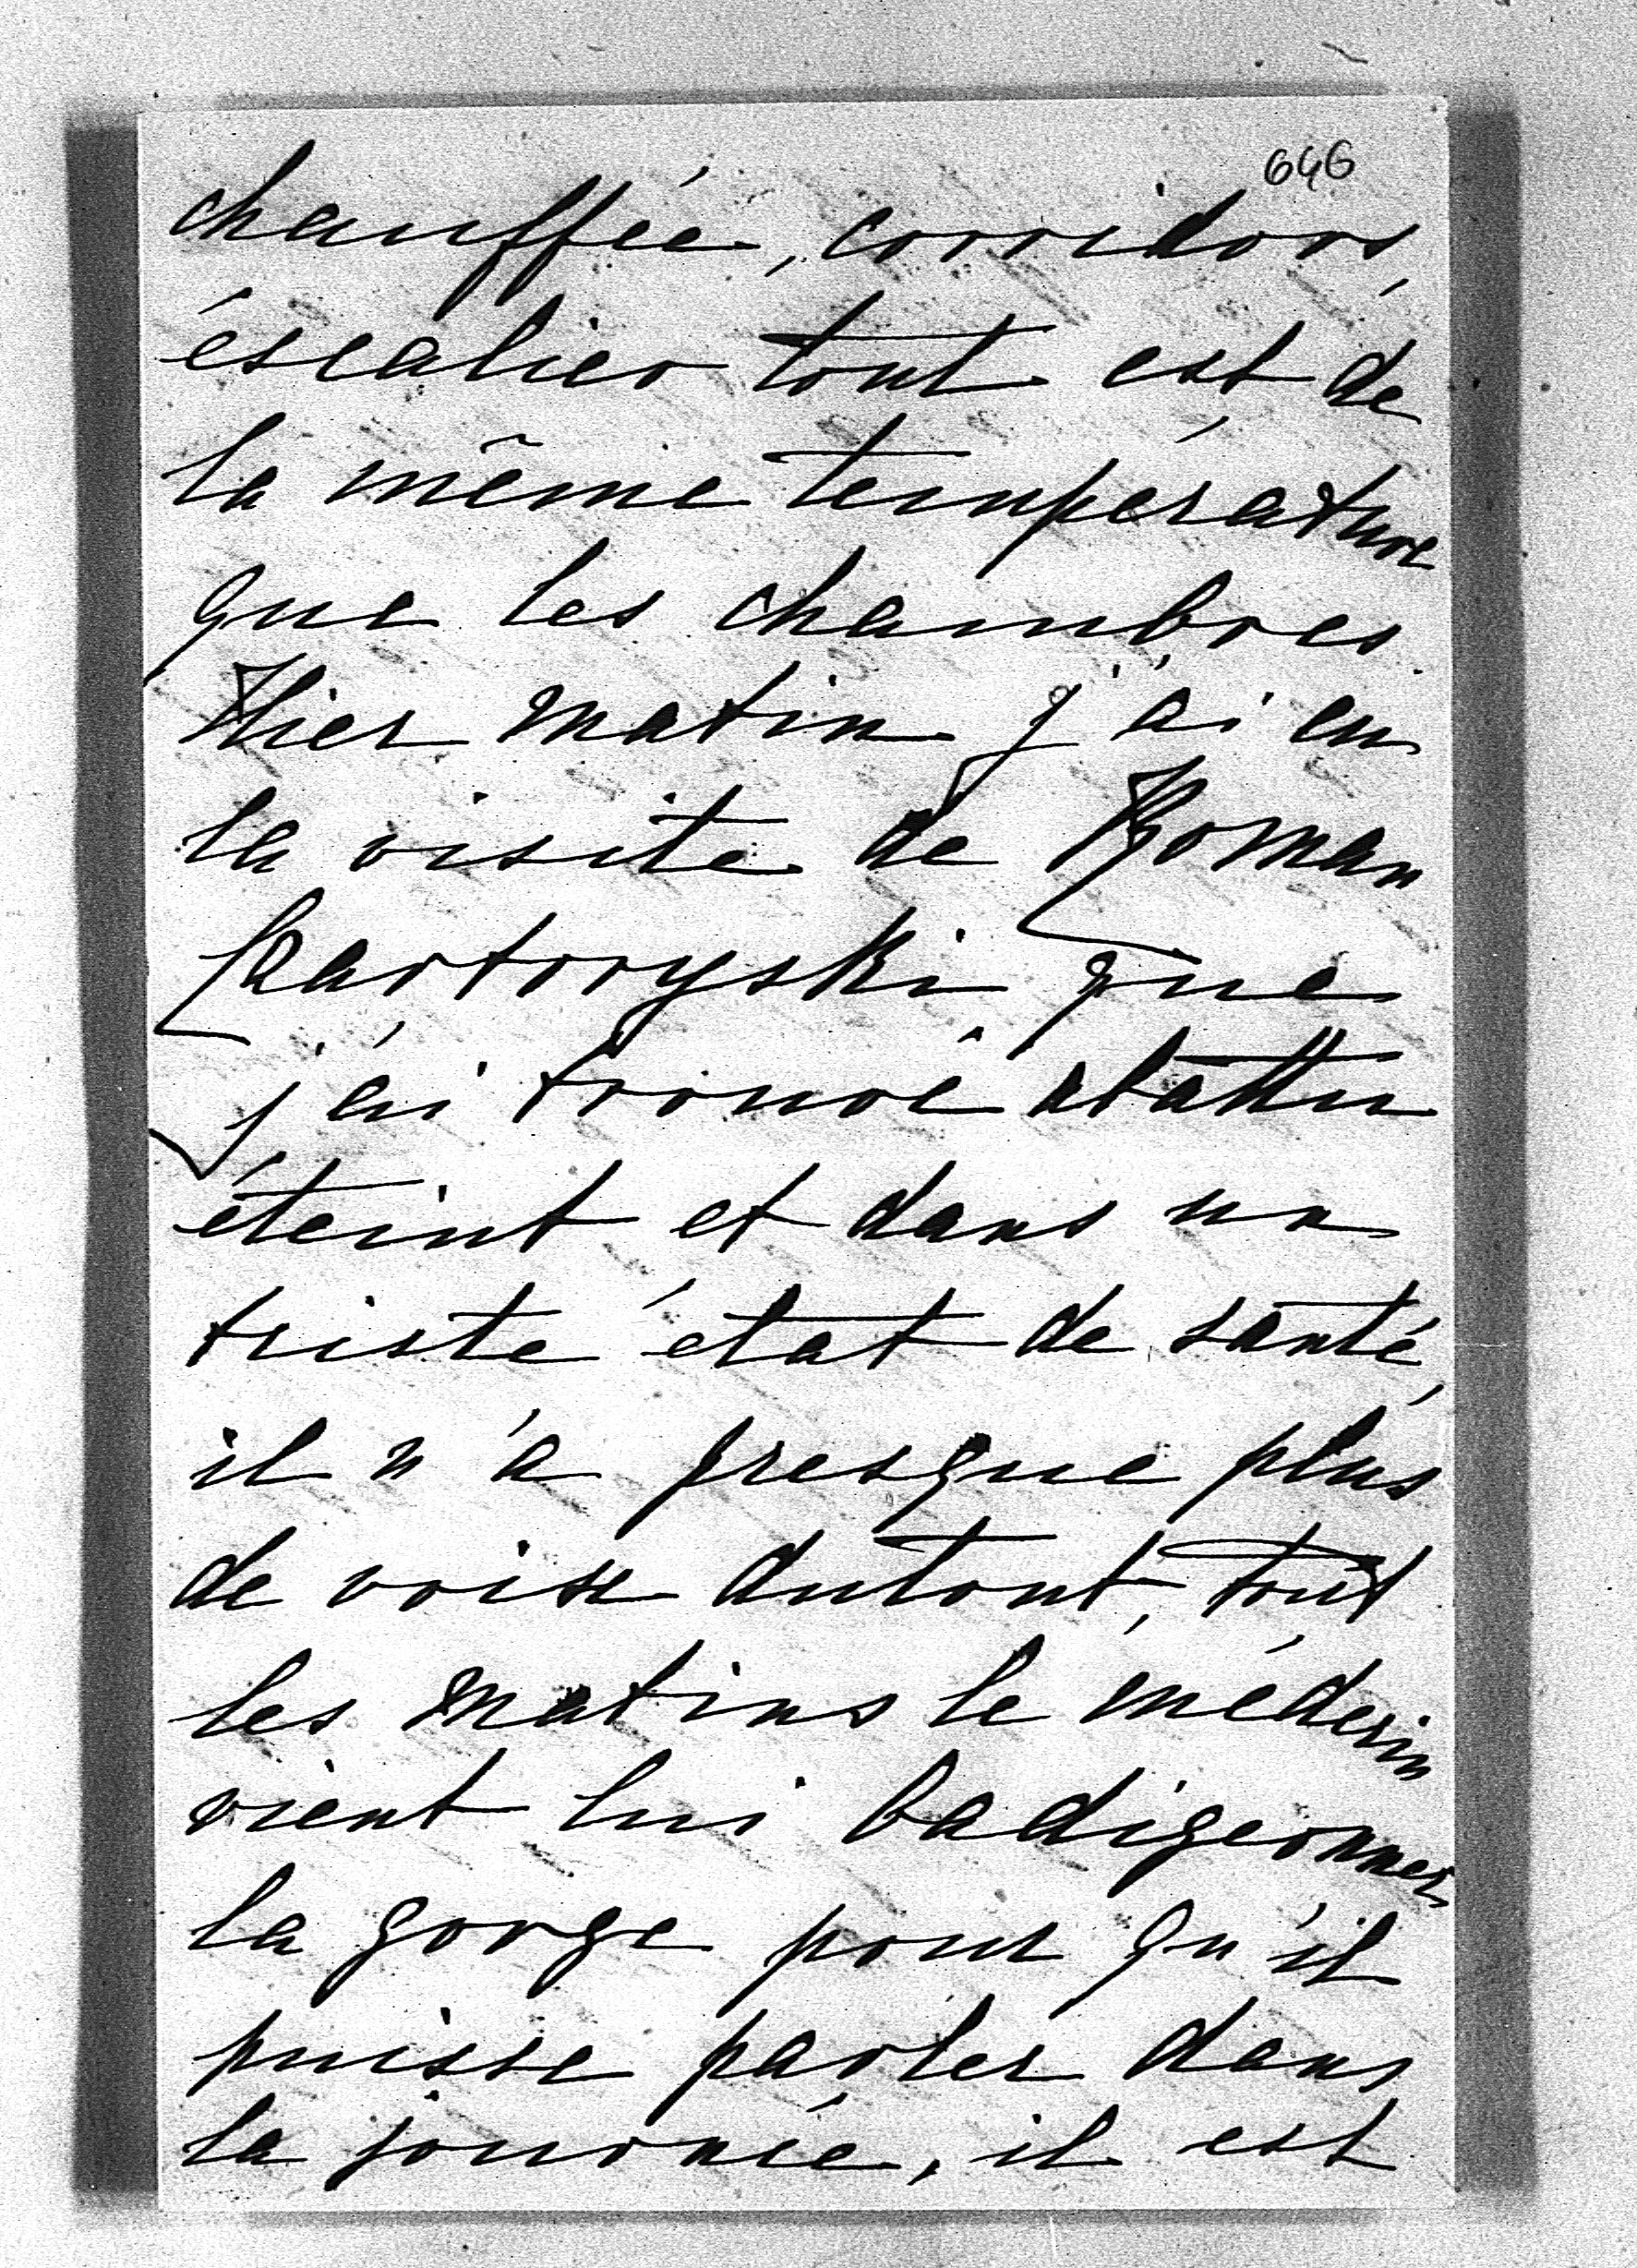 646
chauffée, corridors,
éscalier tout est de
la même température
que les chambres.
Hier matin j'ai eu
la visite de Roman
Czartoryski que
j'ai trouvé abattu
éteint et dans un
triste état de santé,
il n'a presque plus
de voix dutout, tout
les matins le médecin
vient lui badigeonner
la gorge pour qu'il
puisse parler dans
la journée, il est